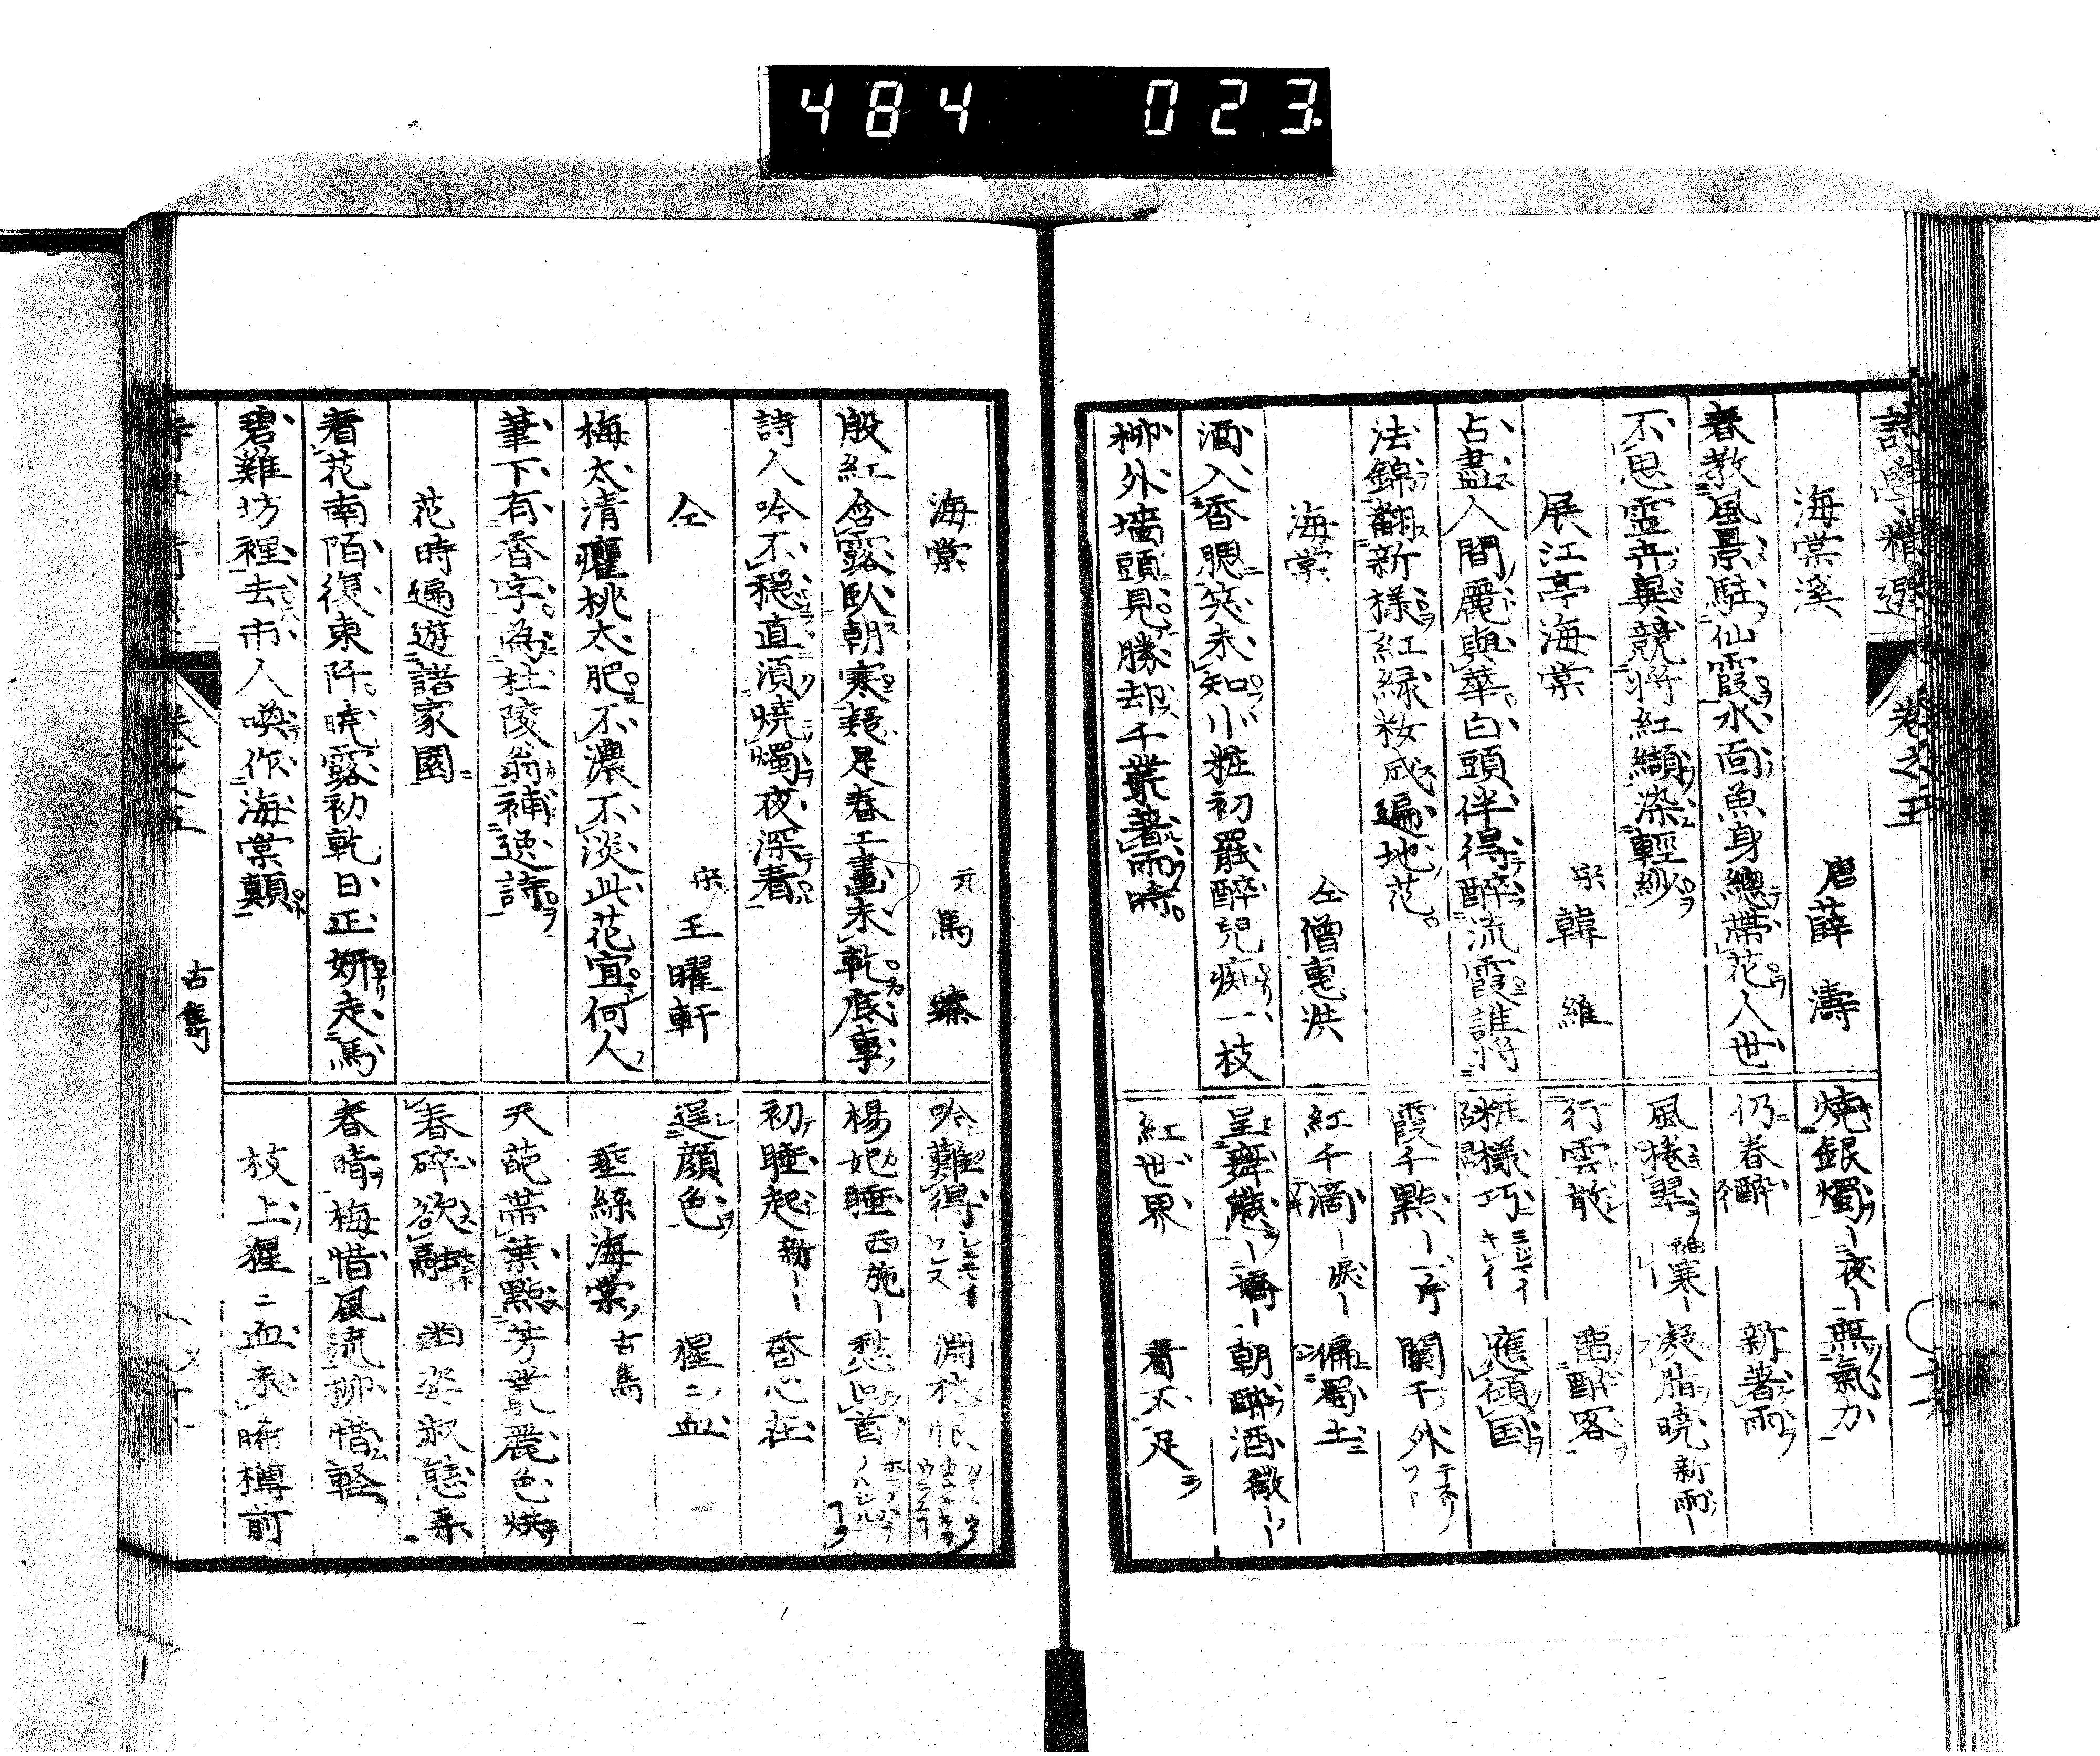 484 023.
詩學精選 卷之五
海棠溪 唐薛濤
春教風景駐仙霞水面魚身總帶花人世
不思靈卉異競將紅纈染輕紗
展江亭海棠 宋韓維
占盡人間麗與華白頭伴得醉流霞誰將
法錦翻新様紅緑粧成遍地花
海棠 仝僧惠洪
酒入香腮笑未知小粧初罷醉兒痴一枝
柳外墻頭見勝却千叢著雨時
燒銀燭 夜 無氣力
仍春酔 新著雨
風捲翠 寒 凝脂曉 新雨
行雲散 留酔客
粧様巧 應傾国
霞千點 闌干外
紅千滴 涙 偏蜀土
呈舞 嬌 朝酔酒 微
紅世界 看不足
海棠 元馬臻
殷紅含露臥朝寒疑是春工畫未乾底事
詩人吟不穏直須燒燭夜深看
仝 宋王曜軒
梅太清癯桃太肥不濃不淡此花宜何人
筆下有香字為杜陵翁補逸詩
花時遍遊諸家園
看花南陌復東阡曉露初乾日正妍走馬
碧雞坊裡去市人喚作海棠顛
吟難得 淵材恨
楊妃睡 西施 愁 首
初睡起 新 香心在
逞顔色 猩二血
垂絲海棠 古雋
天葩帯葉點芳叢麗色烘
春碎欲融 幽姿淑態弄
春晴梅惜風流柳惜軽
枝上猩二血 晞樽前
古雋